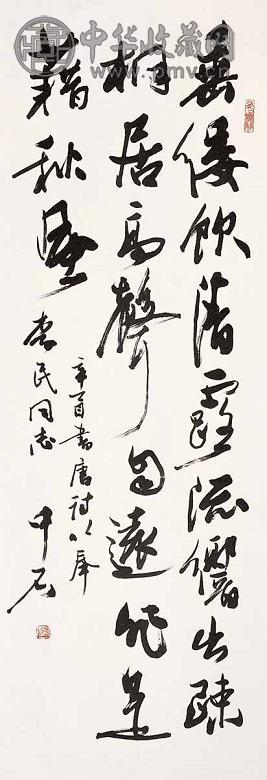 中华收藏网
www.pmv.cn
垂緌飲清露流響出疎
桐居高聲自遠非是
藉秋風
辛酉書唐詩以奉
民同志
中石